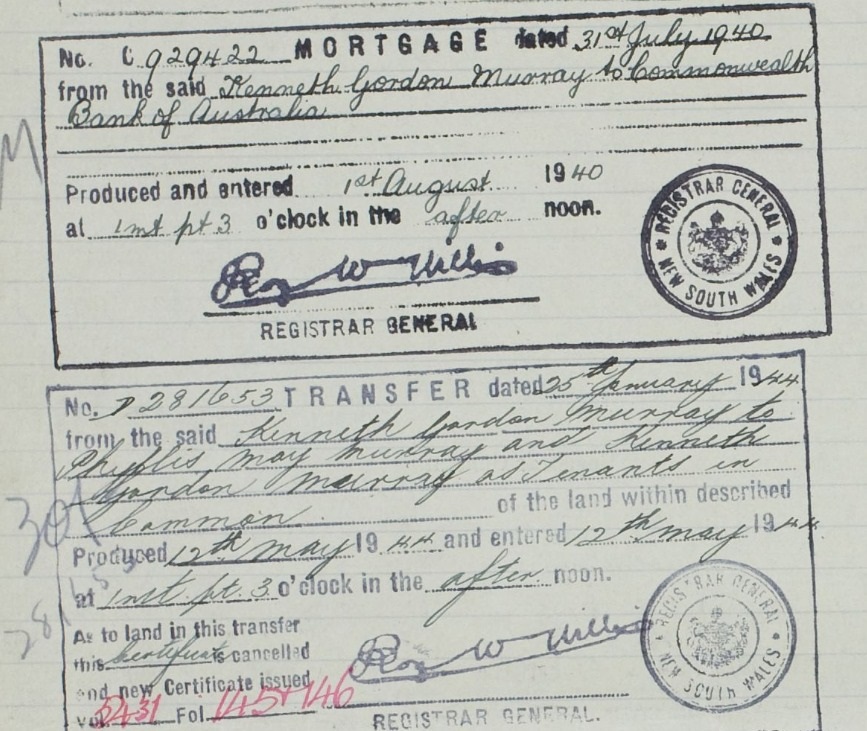 No. C 929422 MORTGAGE dated 31st July 1940
from the said Kenneth Gordon Murray to Commonwealth
Bank of Australia
Produced and entered 1st August 1940
at 1mt pt 3 o'clock in the after noon.
REGISTRAR GENERAL
REGISTRAR GENERAL
NEW SOUTH WALES
No. D 281653 TRANSFER dated 25th January 1944
from the said Kenneth Gordon Murray to
Phyllis may Murray and Kenneth
Gordon Murray as Tenants in
Common of the land within described
Produced 12th may 1944 and entered 12th may 1944
at 1mt. pt. 3 o'clock in the after noon.
As to land in this transfer
this Certificate is cancelled
and new Certificate issued
Vol. 5431 Fol 145 + 146
REGISTRAR GENERAL.
REGISTRAR GENERAL
NEW SOUTH WALES